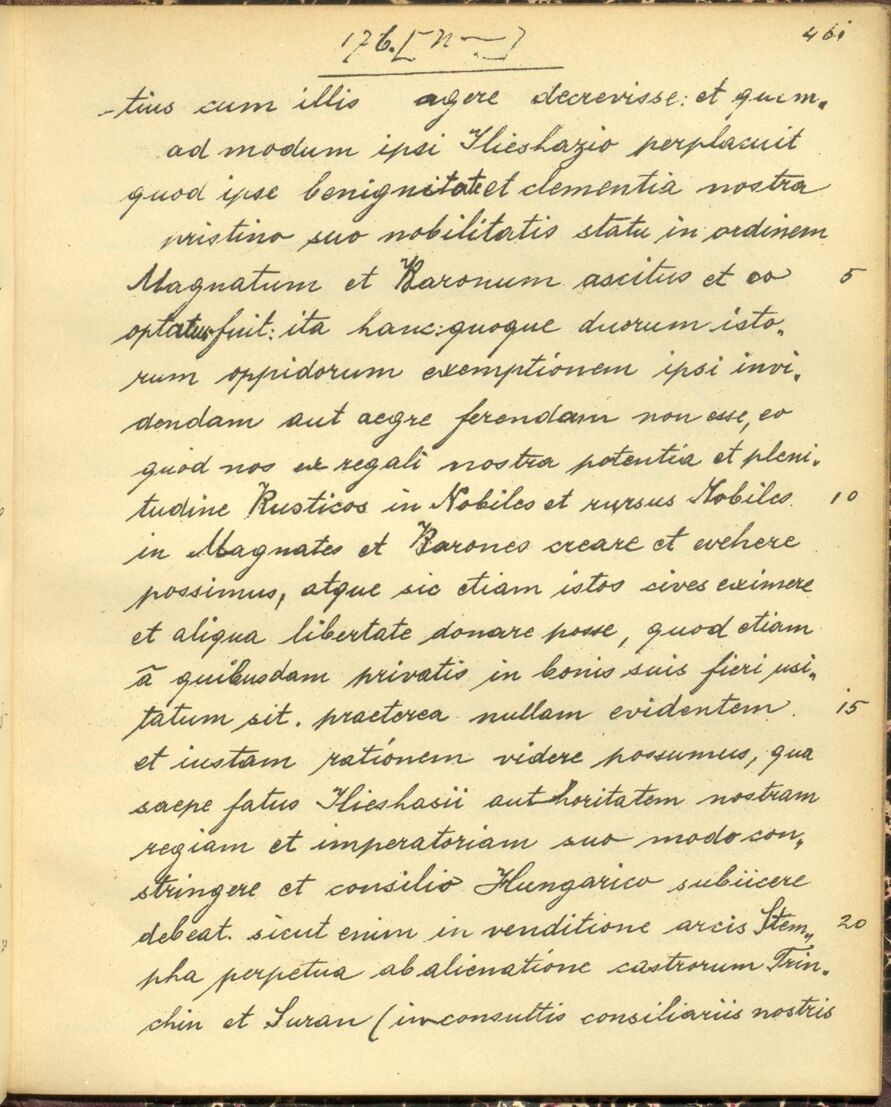 176.
461
-tius cum illis agere decrevisse: et quem„
ad modum ipsi Ilieshazio perplacuit
quod ipse benignitate et clementia nostra
pristino suo nobilitatis statu in ordinem
Magnatum et Baronum ascitus et co 5
optatus fuit: ita hanc quoque duorum isto„
rum oppidorum exemptionem ipsi invi„
dendam aut aegre ferendam non esse, eo
quod nos ex regali nostra potentia et pleni„
tudine Rusticos in Nobiles et rursus Nobiles 10
in Magnates et Barones creare et evehere
possimus, atque sic etiam istos cives eximere
et aliqua libertate donare posse, quod etiam
ã quibusdam privatis in bonis suis fieri usi„
tatum sit. praeterea nullam evidentem 15
et iustam rationem videre possumus, qua
saepe fatus Ilieshasii authoritatem nostram
regiam et imperatoriam suo modo con„
stringere et consilio Hungarico subiicere
debeat. sicut enim in venditione arcis Stem„ 20
pha perpetua abalienatione castrorum Trin„
chin et Suran (inconsultis consiliariis nostris